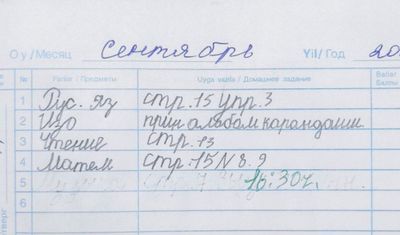 Oy/Месяц Сентябрь Yil/Год 20
№ Fanlar / Предметы Uyga vazifa / Домашнее задание Baho/ Баллы
1 Рус. яз стр. 15 упр. 3
2 Изо прин альбом карандаши
3 Чтение стр. 13
4 Матем стр. 15 N 8. 9
5 16:30 ч.
6